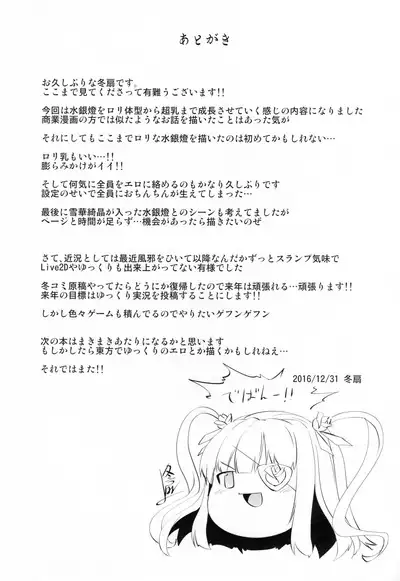 あとがき
お久しぶりな冬扇です。
ここまで見てくださって有難うございます!!
今回は水銀燈をロリ体型から超乳まで成長させていく感じの内容になりました
商業漫画の方では似たようなお話を描いたことはあった気が
それにしてもここまでロリな水銀燈を描いたのは初めてかもしれない…
ロリ乳もいい…!!
膨らみかけがイイ!!
そして何気に全員をエロに絡めるのもかなり久しぶりです
設定のせいで全員におちんちんが生えてしまった…
最後に雪華綺晶が入った水銀燈とのシーンも考えてましたが
ページと時間が足らず…機会があったら描きたいのぜ
さて、近況としては最近風邪をひいて以降なんだかずっとスランプ気味で
Live2Dやゆっくりも出来上がってない有様でした
冬コミ原稿やってたらどうにか復帰したので来年は頑張れる…頑張ります!!
来年の目標はゆっくり実況を投稿することにします!!
しかし色々ゲームも積んでるのでやりたいゲフンゲフン
次の本はまきまきあたりになるかと思います
もしかしたら東方でゆっくりのエロとか描くかもしれねえ…
それではまた!!
2016/12/31 冬扇
でばんー!!